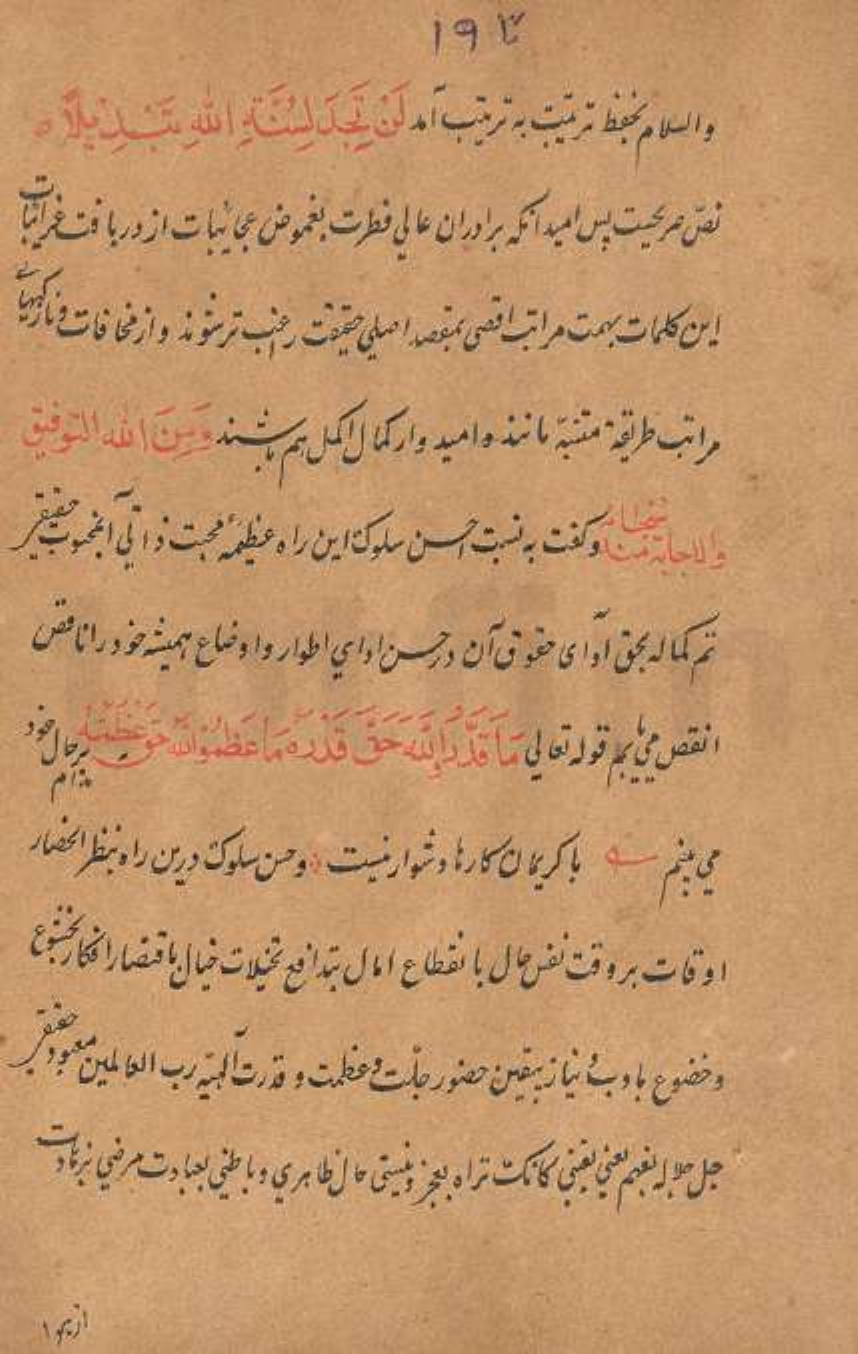 ۱۹۳
والسلام بحفظ تربیت به ترتیب آمد لَنْ تَجِدَ لِسُنَّةِ اللهِ تَبْدِیْلاً
نصّ صریحست پس امید انکه برادران عالی فطرت بغموض عجائبات از دریافت غرائبات
این کلمات بهمت مراتب اقصی بمقصد اصلی حقیقت راغب تر شوند و از مخافات و نازکیهائے
مراتب طریقة متنبّه مانند و امیدوار کمال اکمل هم باشند وَمِنَ الله التوفیق
والاجابة منه وکفت به نسبت احسن سلوک این راه عظیمهٔ محبت ذاتی آنمحبوب حقیقی
تم کماله بحق ادای حقوق آن درحسن ادای اطوار و اوضاع همیشه خود را ناقص
انقص می یابم قوله تعالی مَا قَدَّرُوا اللهَ حَقَّ قَدْرِهٖ مَا عَظَمُوا اللهَ حَقَّ عَظْمَتِهٖ برحال خود مدام
می بینم با کریمان کارها دشوار نیست وحسن سلوک درین راه بنظر انحضار
اوقات بروقت نفس حال بانقطاع امال بتدافع تخیلات خیال باقتصار افکار بخشوع
وخضوع بادب و نیاز بیقین حضور جلّت وعظمت و قدرت آلهیّه رب العالمین معبود حقیقی
جل جلاله نفهم یعنی یقینی کانک تراه بعجز و نیستی حال ظاهری و باطنی بعبادت مرضی